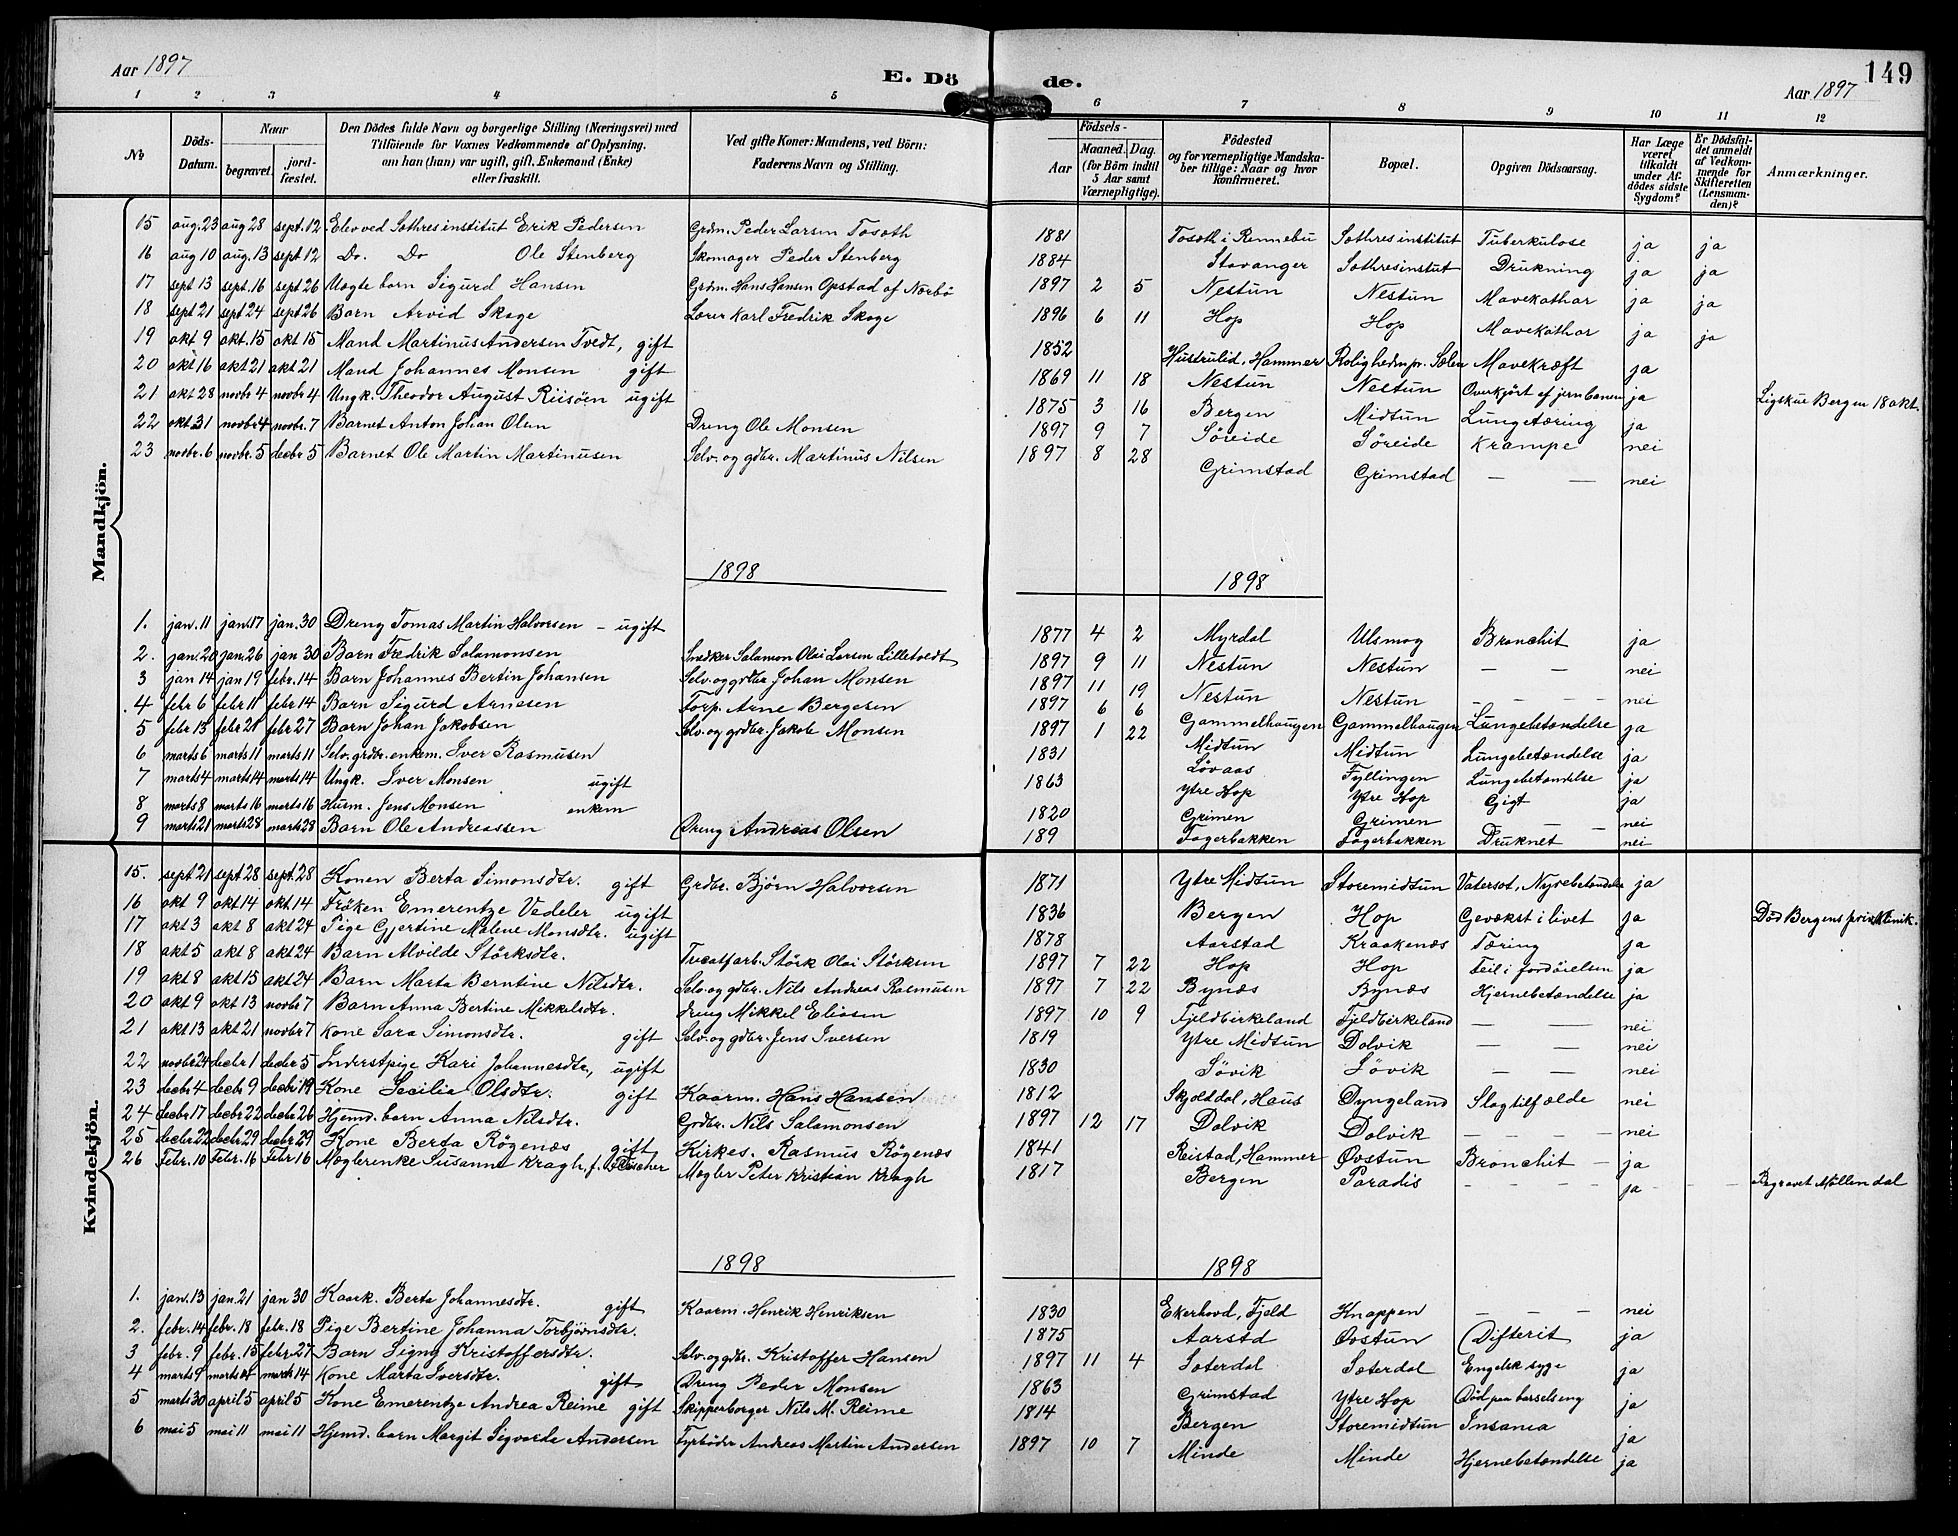 Aar 1897
E. Dö de.
149
Aar 1897
1 2 3 4 5 6 7 8 9 10 11 12
No
Döds-Datum.
Naar
begravet. jordfæstet.
Den Dödes fulde Navn og borgerlige Stilling (Næringsvei) med Tilföiende for Voxnes Vedkommende af Oplysning, om han (hun) var ugift, gift, Enkemand (Enke) eller fraskilt.
Ved gifte Koner: Mandens, ved Börn: Faderens Navn og Stilling.
Födsels-
Aar Maaned. Dag.
(for Börn indtil 5 Aar samt Værnepligtige).
Födested og for værnepligtige Mandskaber tillige: Naar og hvor konfirmeret.
Bopæl.
Opgiven Dödsaarsag.
Har Læge været tilkaldt under Afdödes sidste Sygdom?
Er Dödsfaldet anmeldt af Vedkommende for Skifteretten (Lensmanden)?
Anmærkninger.
Mandkjön.
15 aug. 23 aug 28 sept. 12 Elev ved Sothres institut Erik Pedersen Grdm. Peder Larsen Tosoth 1881 Tosoth i Rennebu Sothres institut Tuberkulose ja ja
16 aug 10 aug. 13 sept 12 Do. Do Ole Stenberg Skomager Peder Stenberg 1884 Stavanger Sothresinstut Drukning ja ja
17 sept 13 sept. 16 sept 26 Uægte barn Sigurd Hansen Grdm. Hans Hansen Opstad af Nærbö 1897 2 5 Nestun Nestun Mavekathar ja ja
18 sept 21 sept 24 sept 26 Barn Arvid Skage Lærer Karl Fredrik Skage 1896 6 11 Hop Hop Mavekathar ja ja
19 okt 9 okt. 15 okt 15 Mand Martinus Andersen Tvedt, gift 1852 Hustrulid, Hammer Roligheden pr. Sælen Mavekræft ja
20 okt 16 okt 21 okt 21 Mand Johannes Monsen gift 1869 11 18 Nestun Nestun Overkjört af jernbanen ja
21 okt 28 novbr 4 novbr 4 Ungk. Theodor August Riisöen ugift 1875 3 16 Bergen Midtun Lungetæring ja Ligskue Bergen 18 okt.
22 okt. 31 novbr 4 novbr. 7 Barnet Anton Johan Olsen Dreng Ole Monsen 1897 9 7 Söreide Söreide Krampe nei
23 novbr. 6 novbr. 5 decbr 5 Barnet Ole Martin Martinusen Selv. og gdbr. Martinus Nilsen 1897 8 28 Grimstad Grimstad — — nei
1898 1898
1. jan. 11 jan. 17 jan. 30 Dreng Tomas Martin Halvorsen - ugift 1877 4 2 Myrdal Ulsmog Bronchit ja
2. jan. 20 jan. 26 jan 30 Barn Fredrik Salamonsen Snedker Salamon Olai Larsen Lilletvedt 1897 9 11 Nestun Nestun — — nei
3 jan 14 jan 19 febr. 14 Barn Johannes Bertin Johansen Selv. og gdbr Johan Monsen 1897 11 19 Nestun Nestun - - - - nei
4 febr 6 febr 11 febr 14 Barn Sigurd Arnesen Forp. Arne Bergesen 1897 6 6 Gammelhaugen Gammelhaugen Lungebetændelse ja
5 febr 15 febr 21 febr 27 Barn Johan Jakobsen Selv. og grdbr. Jakob Monsen 1897 1 22 Midtun Midtun Lungebetændelse ja
6 marts 6 marts 11 marts 11 Selv. grdbr. enkem. Iver Rasmusen 1831 Lövaas Fyllingen Lungebetændelse ja
7 marts 4 marts 14 marts 14 Ungk. Iver Monsen ugift 1863 Ytre Hop Ytre Hop Gigt ja
8 marts 8 marts 16 marts 16 Husm. Jens Monsen enkem 1820 Grimen Grimen — — nei
9 marts 21 marts 28 marts 28 Barn Ole Andreassen Dreng Andreas Olsen 189 Fagerbakken Fagerbakken Druknet nei
Kvindekjön.
15. sept 21 sept 28 sept. 28 Konen Berta Simonsdtr. gift Grdbr. Björn Halvorsen 1871 Ytre Midtun Storemidtun Vatersot, Nyrebetændelse ja
16 okt 9 okt 14 okt. 14 Fröken Emerentze Vedeler ugift 1836 Bergen Hop Gevækst i livet ja Död Bergens privatklinik.
17 okt 3 okt 8 okt 24 Pige Gjertine Malene Monsdtr. ugift 1878 Aarstad Kraakenæs Tæring ja
18 okt 5 okt 8 okt 24 Barn Alvilde Störksdtr. Störk Olai Störksen 1897 7 22 Hop Hop Feil i fordöielsen ja
19 okt 8 okt 15 okt 24 Barn Marta Berntine Nilsdtr. Selv. og gdbr. Nils Andreas Rasmusen 1897 7 22 Bynæs Bynæs Hjernebetændelse ja
20 okt 9 okt 13 novbr 7 Barn Anna Bertine Mikkelsdtr. dreng Mikkel Eliasen 1897 10 9 Fjeldbirkeland Fjeldbirkeland — — nei
21 okt 13 okt 21 novbr 7 Kone Sara Simonsdtr. gift Selv. og gdbr. Jens Iversen 1819 Ytre Midtun Dolvik — — nei
22 novbr 24 decbr 1 decbr 5 Inderstpige Kari Johannesdtr., ugift 1830 Sövik Sövik — — nei
23 decbr 4 decbr 9 decbr 19 Kone Secilia Olsdtr. gift Kaarm. Hans Hansen 1812 Skjolddal, Haus Dyngeland Slagtilfælde nei
24 decbr 17 decbr 22 decbr 26 Hjemd. barn Anna Nilsdtr. Grdbr. Nils Salamonsen 1897 12 17 Dolvik Dolvik — — — nei
25 decbr 22 decbr 29 decbr 29 Kone Berta Rögenæs gift Kirkes. Rasmus Rögenæs 1841 Reistad, Hammer Övstun Bronchit — ja
26 Febr. 10 Febr. 16 Febr 16 Mæglerenke Susanna Kragh, f. Fleischer Mægler Peter Kristian Kragh 1817 Bergen Paradis - - - - ja - - - Begravet Möllendal
1898 1898
1. jan. 13 jan. 21 jan 30 Kaark. Berta Johannesdtr. gift Kaarm. Henrik Henriksen 1830 Ekerhovd, Fjeld Knappen — — — nei
2. febr. 14 febr. 18 febr. 18 Pige Bertine Johanna Torbjörnsdtr. 1875 Aarstad Övstun Difterit ja
3 febr. 9 febr. 15 febr 27 Barn Signy Kristoffersdtr. Selv. og gdbr. Kristoffer Hansen 1897 11 4 Sæterdal Sæterdal Engelsk syge ja
4 marts 9 marts 14 marts 14 Kone Marta Iversdtr. gift Dreng Peder Monsen 1863 Grimstad Ytre Hop Död paa barselseng ja
5 marts 30 april 5 april 5 Kone Emerentze Andrea Reime gift Skipperborger Nils M. Reime 1814 Bergen Storemidtun Insania ja
6 mai 5 mai 11 mai 11 Hjemd. barn Margit Sigvarda Andersen Fyrböder Andreas Martin Andersen 1897 10 7 Minde Minde Hjernebetændelse ja